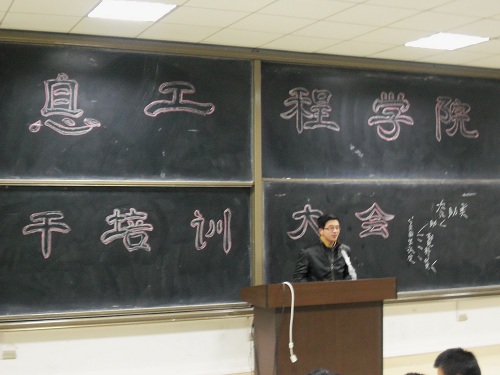 息工程学院
干培训大会